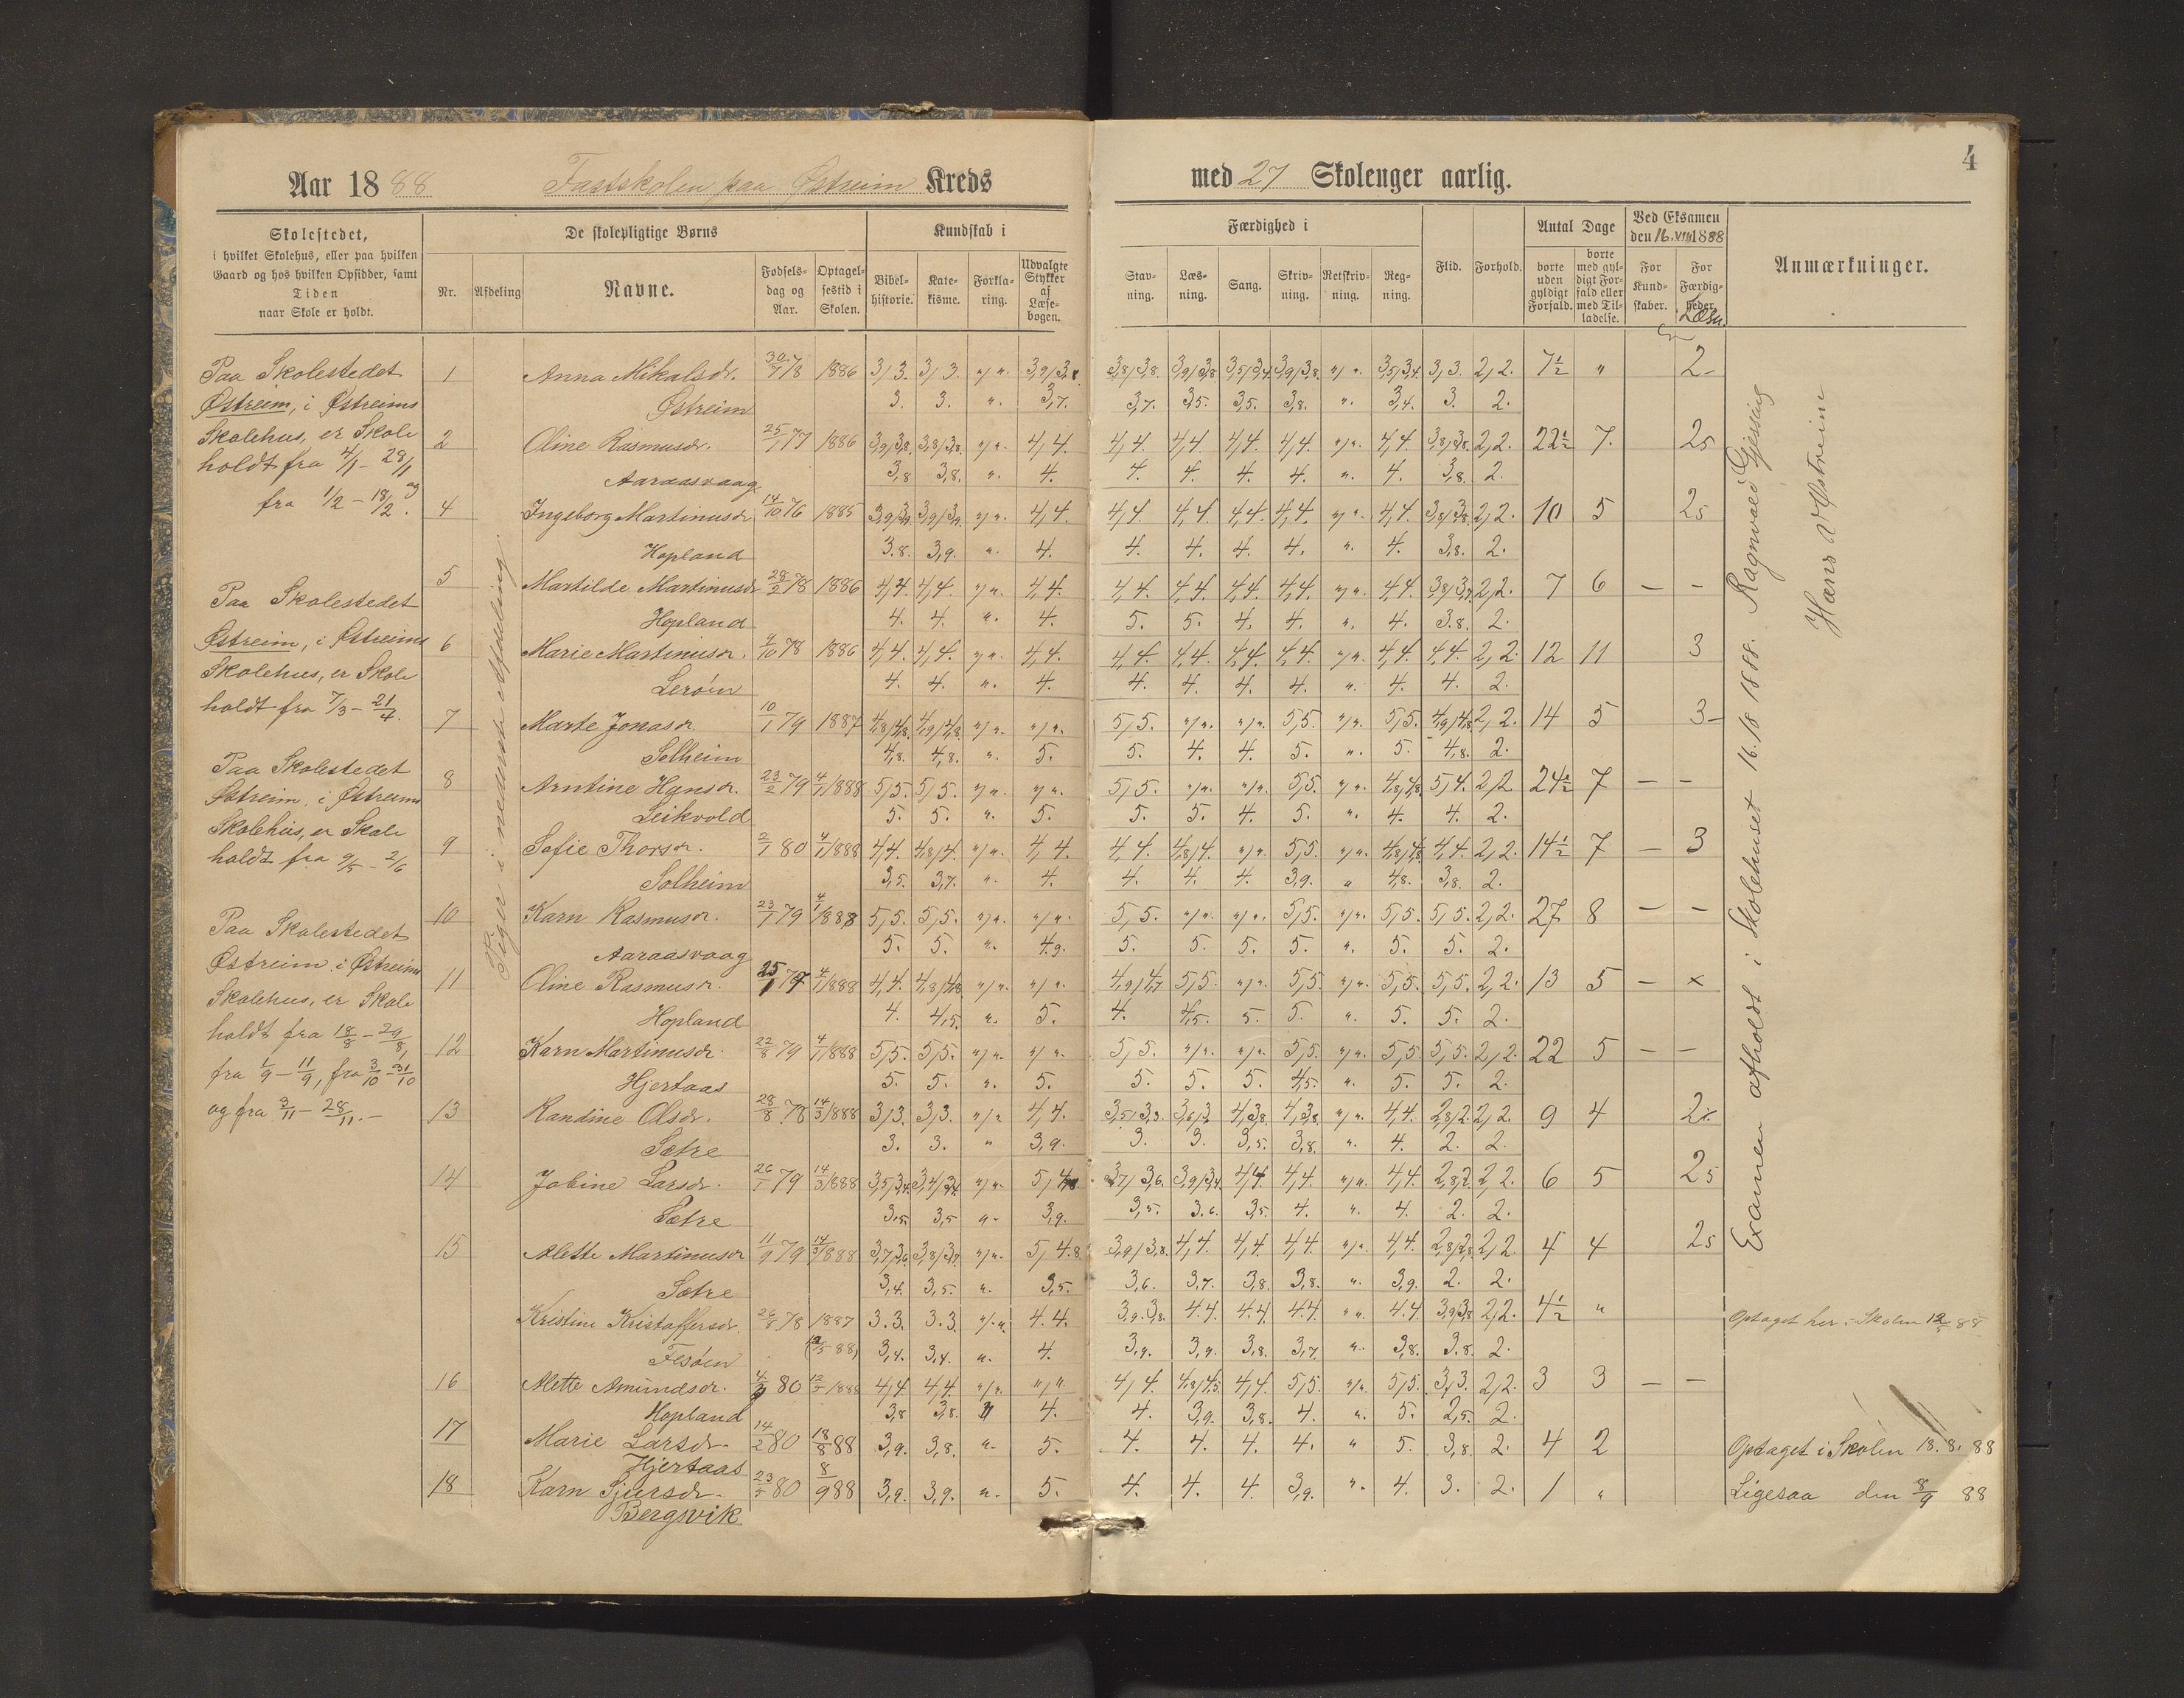 Aar 1888 Fastskolen paa Østreim Kreds med 27 Skolenger aarlig.
4
Skolestedet,
i hvilket Skolehus, eller paa hvilken
Gaard og hos hvilken Opsidder, samt
Tiden
naar Skole er holdt.
De skolepligtige Børns
Nr. Afdeling Navne. Fødsels-dag og Aar. Optagel-sestid i Skolen.
Kundskab i
Bibel-historie. Kate-kisme. Forkla-ring. Udvalgte Stykker af Læse-bogen.
Færdighed i
Stav-ning. Læs-ning. Sang. Skriv-ning. Retskriv-ning. Reg-ning.
Flid. Forhold.
Antal Dage
borte uden gyldigt Forfald. borte med gyl-digt For-fald eller med Til-ladelse.
Ved Eksamen
den 16. VIII 1888
For Kund-skaber. For Færdig-heder. Læsn.
Anmærkninger.
Paa Skolestedet
Østreim, i Østreims
Skolehus, er Skole
holdt fra 4/1 - 28/1
og
fra 1/2 - 18/2.
Paa Skolestedet
Østreim, i Østreims
Skolehus, er Skole
holdt fra 7/3 - 21/4.
Paa Skolestedet
Østreim, i Østreims
Skolehus, er Skole
holdt fra 9/5 - 2/6
Paa Skolestedet
Østreim, i Østreims
Skolehus, er Skole
holdt fra 18/8 - 29/8,
fra 1/9 - 11/9, fra 3/10 - 31/10
og fra 3/11 - 28/11. -
Piger i nederste Afdeling.
1 Anna Mikalsdr. 30/7 78 1886 3/3. 3/3. "/". 3,9/3,8. 3,8/3,8. 3,9/3,8 3,5/3,4 3,9/3,8. "/". 3,5/3,4. 3/3. 2/2. 7½ " 2-
Østreim 3. 3. ". 3,7. 3,7. 3,5. 3,5. 3,8. ". 3,4. 3. 2.
2 Oline Rasmusdr. 25/1 77 1886 3,9/3,8. 3,8/3,8. "/". 4/4. 4/4. 4/4. 4/4. 4/4. "/". 4/4. 3,8/3,8. 2/2. 22½ 7. 25
Aaraasvaag 3,8 3,8. ". 4. 4. 4. 4. 4. ". 4. 3,8. 2.
4 Ingeborg Martinusdr. 14/10 76 1885 3,9/3,9. 3,9/3,9. "/". 4/4. 4/4. 4/4. 4/4. 4/4. "/". 4/4. 3,8/3,8. 2/2. 10 5 25
Hopland 3.8. 3,9. ". 4. 4. 4. 4. 4. ". 4. 3,8. 2.
5 Martilde Martinusdr. 28/2 78 1886 4/4. 4/4. "/". 4/4. 4/4. 4/4. 4/4. 4/4. "/". 4/4. 3,8/3,9. 2/2. 7 6 - -
Hopland 4. 4. ". 4. 5. 5. 4. 4. ". 4. 3.8. 2.
6 Marie Martinusdr. 9/10 78 1886 4/4. 4/4. "/". 4/4. 4/4. 4/4. 4/4. 4/4. "/". 4/4. 4/4. 2/2. 12 11 3
Lerøen 4. 4. ". 4. 4. 4. 4. 4. ". 4. 4. 2.
7 Marte Jonasdr. 10/1 79 1887 4,8/4,8. 4,9/4,8. "/". "/". 5/5. "/". "/". 5/5. "/". 5/5. 4,9/4,8. 2/2. 14 5 3-
Solheim 4,8. 4,8. ". 5. 5. 4. 4. 5. ". 5. 4,8. 2.
8 Arntine Hansdr. 23/2 79 4/1 1888 5/5. 5/5. "/". "/". 5/5. "/". "/". 5/5. "/". 4,8/4,8. 5/4. 2/2 24½ 7 - -
Leikvold 5. 5. ". 5. 5. 5. 4. 5. ". 4. 4. 2.
9 Sofie Thorsdr. 2/1 80 4/1 1888 4/4. 4,8/4. "/". 4/4. 4/4. 4,8/4. "/". 5/5. "/". 4,8/4,8 4/4. 2/2. 14½ 7 - 3
Solheim 3,5. 3,7. ". 4. 4. 4. 4. 3,9. " 4,8. 3,8. 2.
10 Karn Rasmusdr. 23/1 79 4/1 1888 5/5. 5/5. "/". "/". 5/5. "/". "/". 5/5. "/". 5/5. 5/5. 2/2. 27 8 - -
Aaraasvaag 5. 5. ". 4.9. 5. 5. 5. 5. ". 5. 5. 2.
11 Oline Rasmusdr. 25/1 79 4/1 1888 4/4. 4,8/4,8 "/". "/". 4,9/4,7 5/5. "/". 5/5. "/". 5/5. 5/5. 2/2. 13 5 - x
Hopland 4. 4,5. ". 5. 4. 4,5. 5. 5. ". 5. 5. 2.
12 Karn Martinusdr. 22/8 79 4/1 1888 5/5. 5/5. "/". "/". 5/5. "/". "/". 5/5. "/". 5/5. 5/5. 2/2. 22 5 - -
Hjertaas 5. 5. ". 5. 5. 5. 5. 4,5. ". 5. 5. 2.
13 Randine Olsdr. 28/8 78 14/3 1888 3/3. 3/3. "/" 4/4. 3,5/3,3. 3,6/3. 4/3,8. 4/3,8. "/". 4/4. 2,8/2. 2/2. 9 4 2x
Sætre 3. 3. " 3,9. 3. 3. 3,5. 3,8. ". 4. 2. 2.
14 Jobine Larsdr. 26/1 79 14/3 1888 3,5/3,4. 3,4/3,4. "/". 5/4,8. 3,7/3,6. 3,9/3,4. 4/4. 4/4. "/". 4/4. 2,8/2 2/2. 6 5 25
Sætre 3,5. 3,5 ". 3,9. 3,5. 3.6. 3,5. 4. ". 4. 2. 2.
15 Alette Martinusdr 11/9 79 14/3 1888 3,7/3,6. 3,8/3,7. "/". 5/4.8. 3,9/3,8. 4/4. 4/4. 4/4. "/". 4/4. 2,8/2,8. 2/2 4 4 25
Sætre 3,4. 3,5. ". 3,5. 3,6. 3,7. 3,8. 3,8. ". 3,9. 2. 2.
Kristine Kristoffersdr. 26/8 78 1887 3.3. 3.3. "/". 4.4. 3,9.3,8. 4.4. 4.4. 4.4. "". 4.4 3,9/3,8 2/2. 4½ " Optaget her i Skolen 12/5 88
Fesøen (12/5 88) 3,4. 3,4. ". 4. 3,9. 3,9. 3,8. 3,7. ". 3,8. 3.8. 2.
16 Mette Amundsdr. 80 12/5 1888 4/4 4/4. "/". "/". 4/4. 4,8/4,5. 4/4. 5/5. "/". 5/5. 3/3. 2/2. 3 3 - -
Hopland 3,8 3,8. 4. 4. 3,9. 3,8. 4. ". 5. 2,5. 2.
17 Marie Larsdr. 14/2 80 18/8 88 3,9. 3,8. ". 5. 4. 4. 4. 4. " 5. 3,8. 2. 4 2 Optaget i Skolen 18. 8. 88
Hjertaas
18 Karn Sjursdr. 23/5 80 8/9 88 3,9. 3,9. ". 5. 4. 4. 4. 3,9. ". 4. 3. 2. 1 " Ligesaa den 8/9 88
Bergsvik
Examen afholdt i Skolehuset 16.18 1888. Ragnvald Gjessing
Hans V Østreim